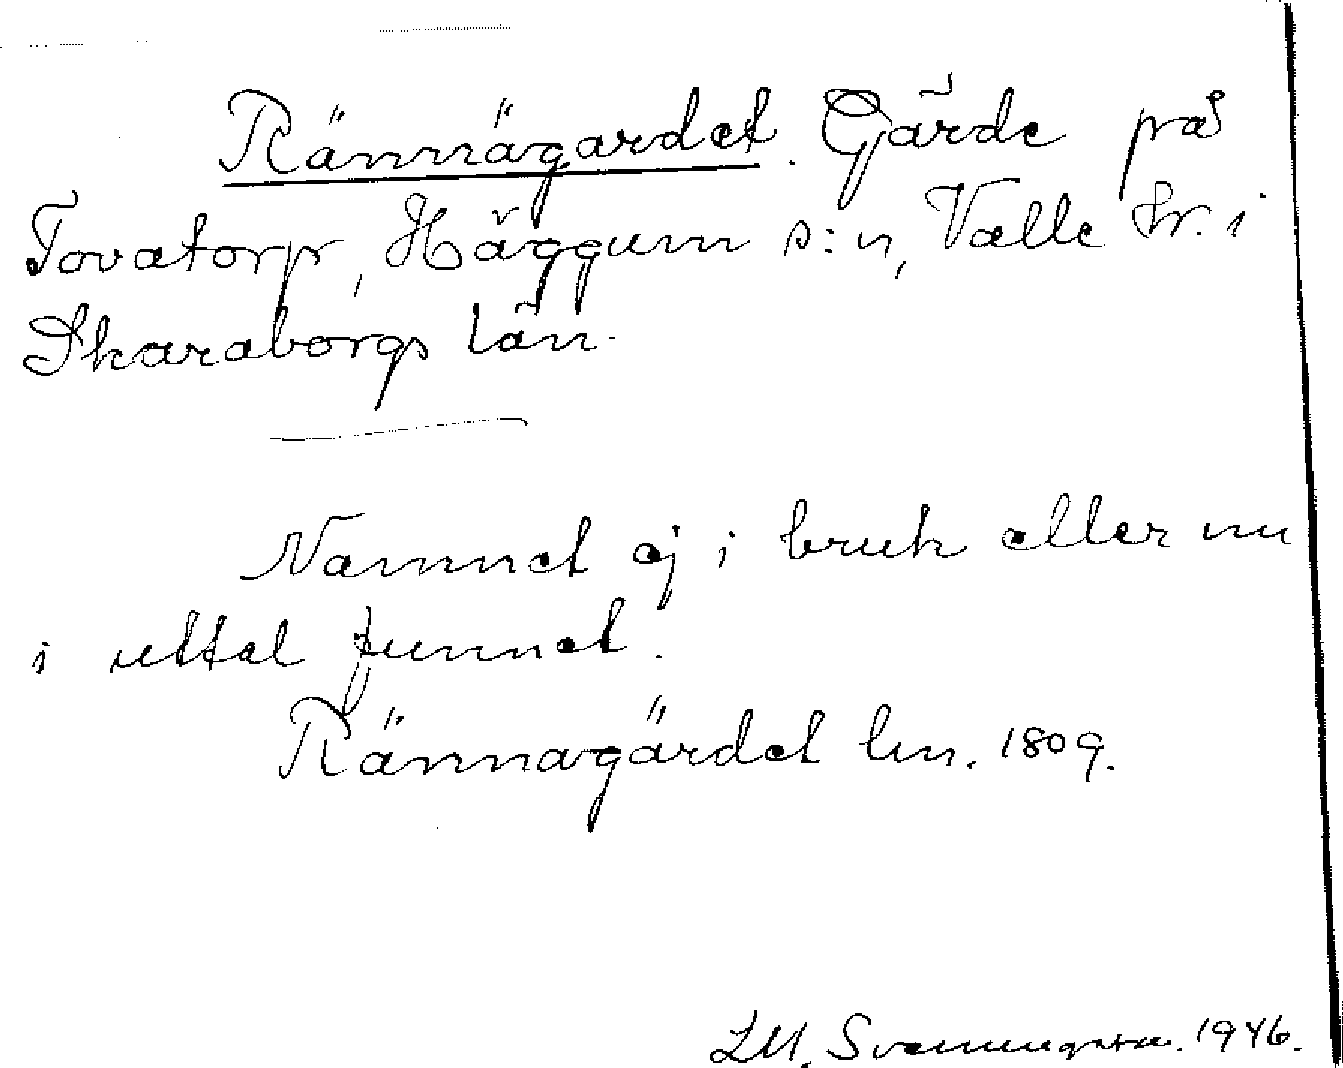 Rännägardet. Gärde på
Tovatorp, Häggum s:n, Valle hr. i
Skaraborgs län.
Namnet ej i bruk eller nu
i uttal funnet.
Rännagärdet lm. 1809.
LM. Svenungsson. 1946.